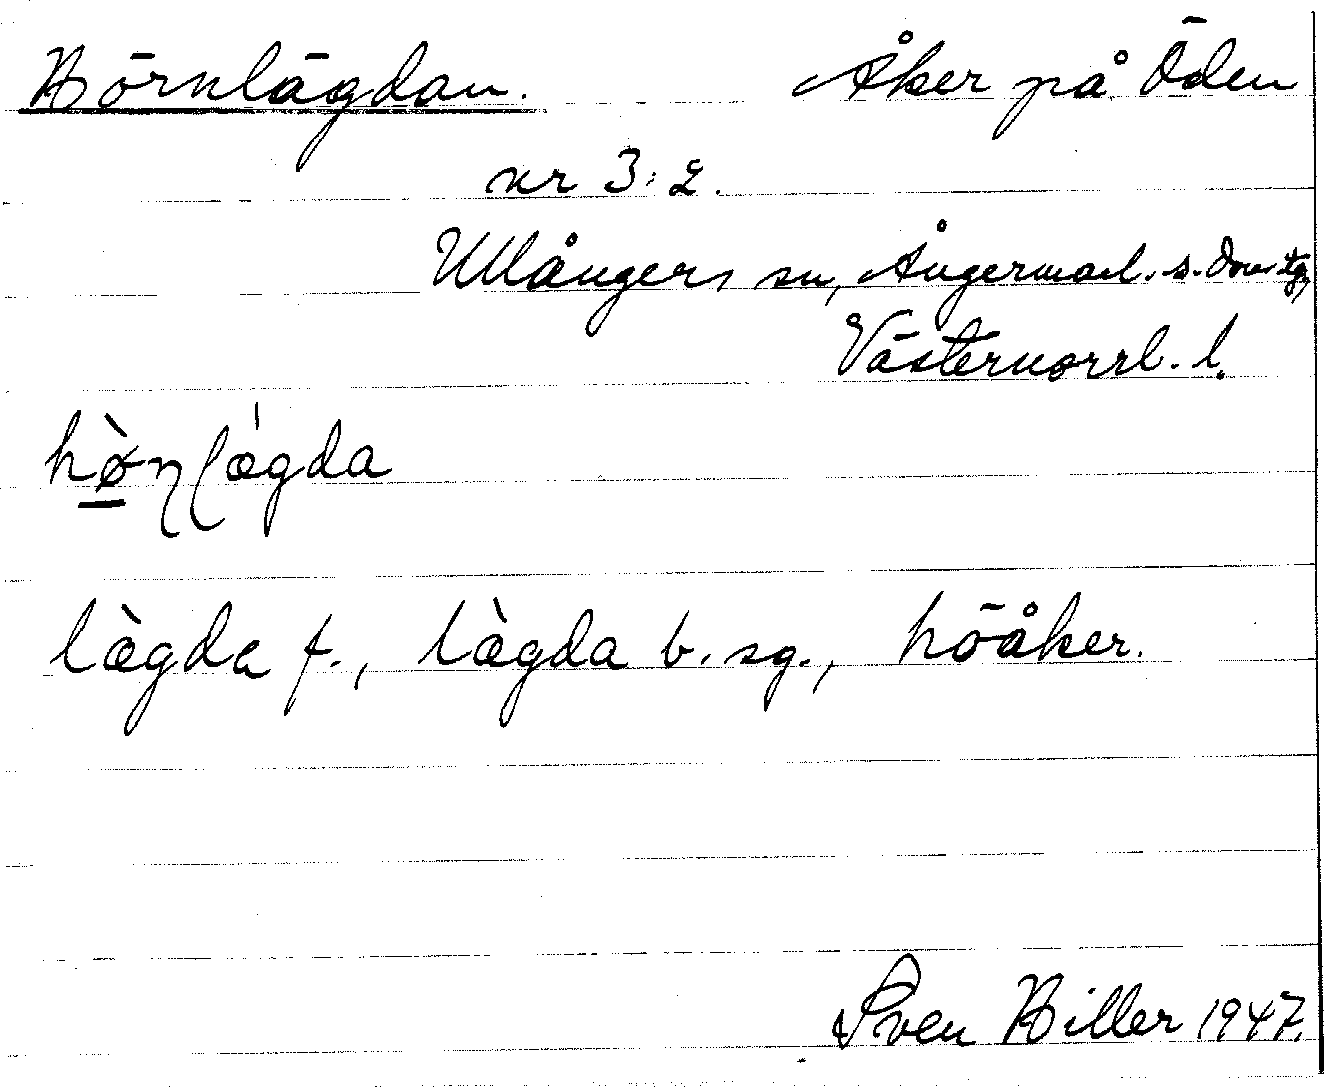 Hörnlägdan. Åker på Öden
nr 3:2.
Ullångers sn, Ångermanl. s. doms. tg,
Västernorrl. l.
hø̀ɳɭǽgda
lægda f., lægda b. sg., höåker.
Sven Hiller 1947.